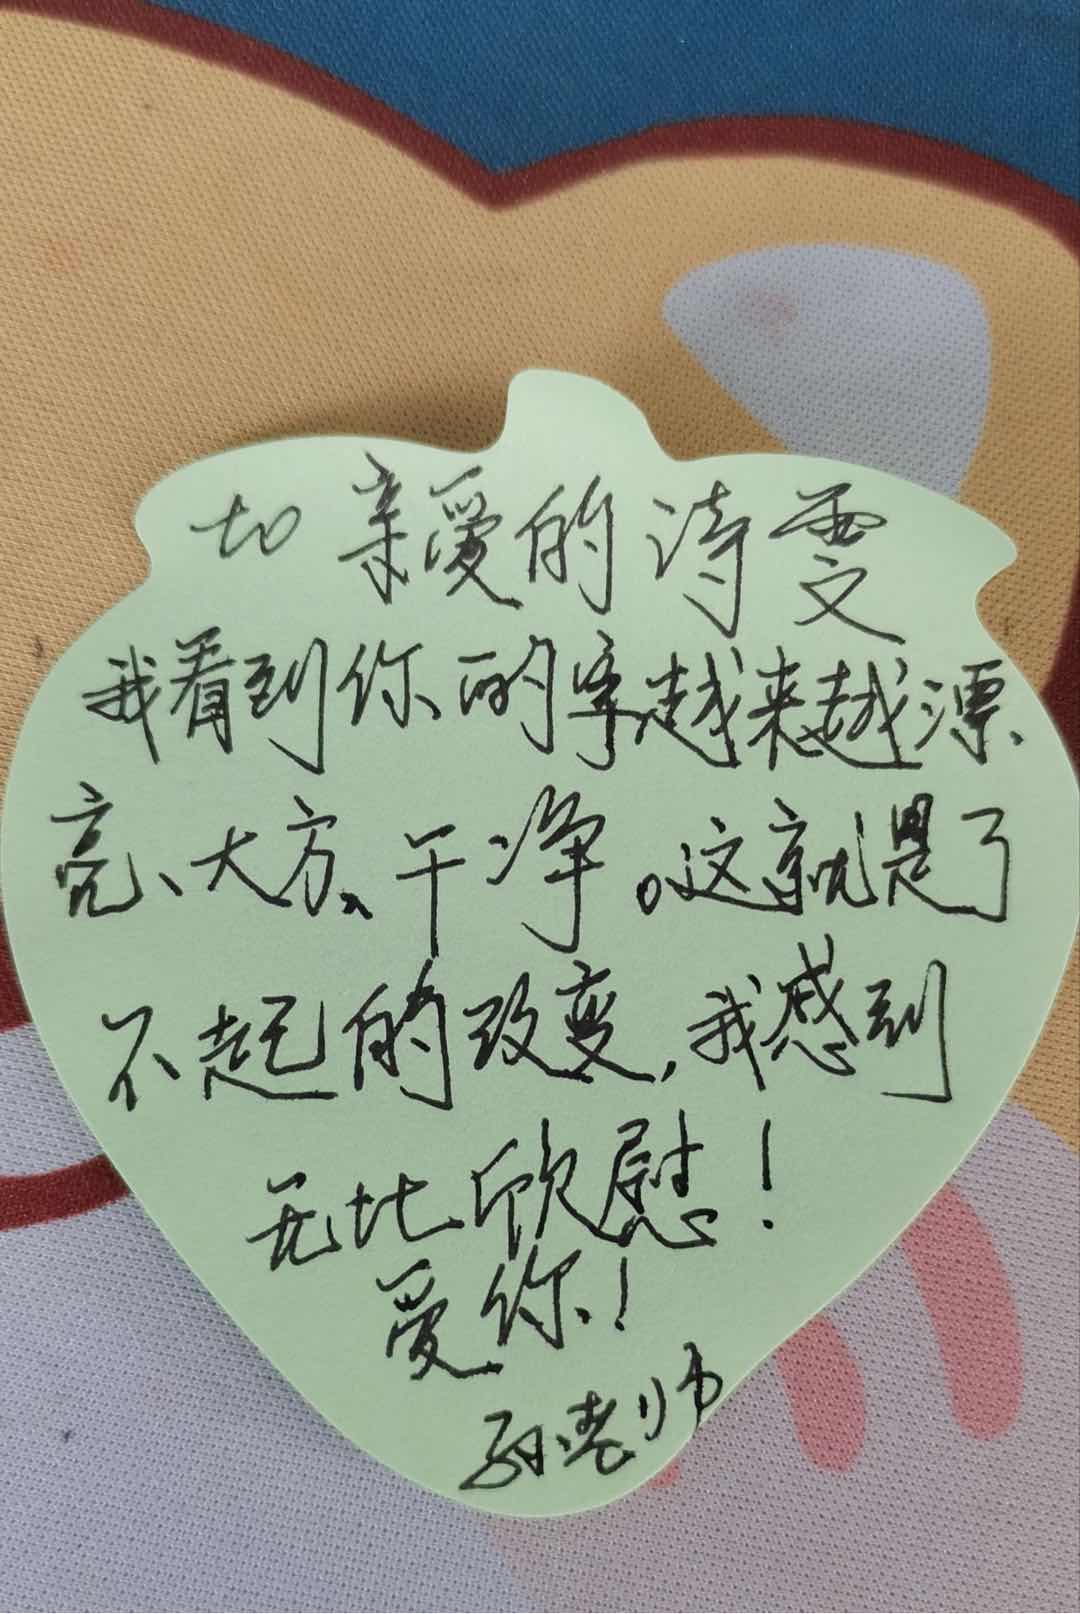 to 亲爱的诗雯
我看到你的字越来越漂
亮、大方、干净。这就是了
不起的改变,我感到
无比欣慰!
爱你!
老师